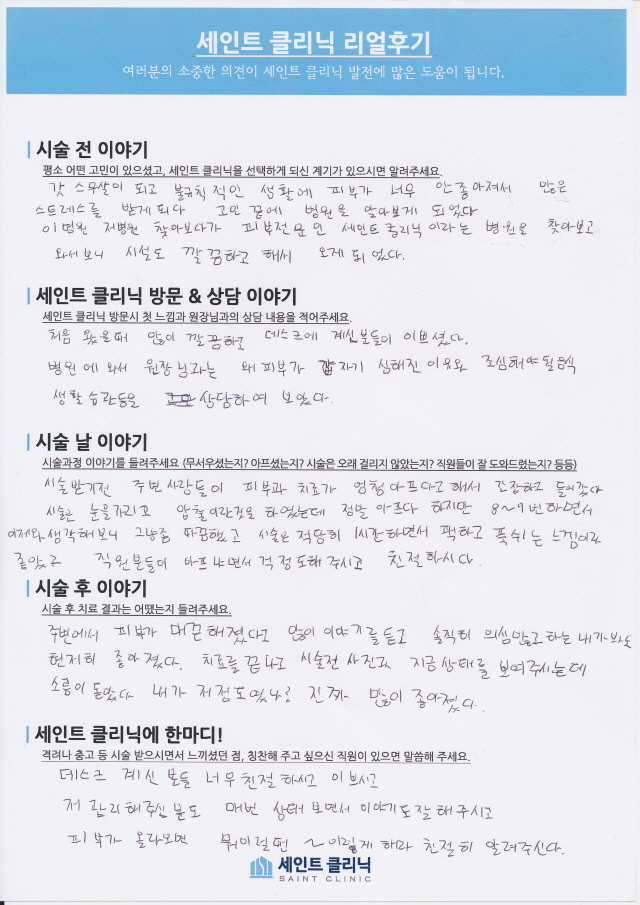 세인트 클리닉 리얼후기
여러분의 소중한 의견이 세인트 클리닉 발전에 많은 도움이 됩니다.
시술 전 이야기
평소 어떤 고민이 있으셨고, 세인트 클리닉을 선택하게 되신 계기가 있으시면 알려주세요.
갓 스무살이 되고 불규칙적인 생활에 피부가 너무 안좋아져서 많은
스트레스를 받게되다 고민 끝에 병원을 알아보게 되었다
이병원 저병원 찾아보다가 피부전문인 세인트클리닉 이라는 병원을 찾아보고
와서보니 시설도 깔끔하고 해서 오게되었다.
세인트 클리닉 방문 & 상담 이야기
세인트 클리닉 방문시 첫 느낌과 원장님과의 상담 내용을 적어주세요.
처음 왔을때 많이 깔끔하고 데스크에 계신분들이 이쁘셨다.
병원에 와서 원장님과는 왜 피부가 갑자기 심해진 이유와 조심해야 될음식
생활 습관등을 상담하여 보았다.
시술 날 이야기
시술과정 이야기를 들려주세요 (무서우셨는지? 아프셨는지? 시술은 오래 걸리지 않았는지? 직원들이 잘 도와드렸는지? 등등)
시술받기전 주변사람들이 피부과 치료가 엄청아프다고해서 긴장하고 들어갔다
시술은 눈을가리고 압출이란것을 하였는데 정말 아프다 하지만 8~9번하면서
이제와 생각해보니 그냥좀 따끔했고 시술은 적당히 1시간하면서 팩하고 푹쉬는 느낌이라
좋았고 직원분들이 아프냐면서 걱정도해주시고 친절하시다.
시술 후 이야기
시술 후 치료 결과는 어땠는지 들려주세요.
주변에서 피부가 매끈해졌다고 많이 이야기를듣고 솔직히 의심많고하는 내가봐도
현저히 좋아졌다. 치료를 끝나고 시술전 사진과 지금상태를 보여주시는데
소름이 돋았다 내가 저정도였나? 진짜 많이 좋아졌다.
세인트 클리닉에 한마디!
격려나 충고 등 시술 받으시면서 느끼셨던 점, 칭찬해 주고 싶으신 직원이 있으면 말씀해 주세요.
데스크 계신 분들 너무친절하시고 이쁘시고
저 관리해주신분도 매번 상태보면서 이야기도잘해주시고
피부가 올라오면 뭐이럴땐 ~이렇게 하라 친절히 알려주신다.
세인트 클리닉
SAINT CLINIC